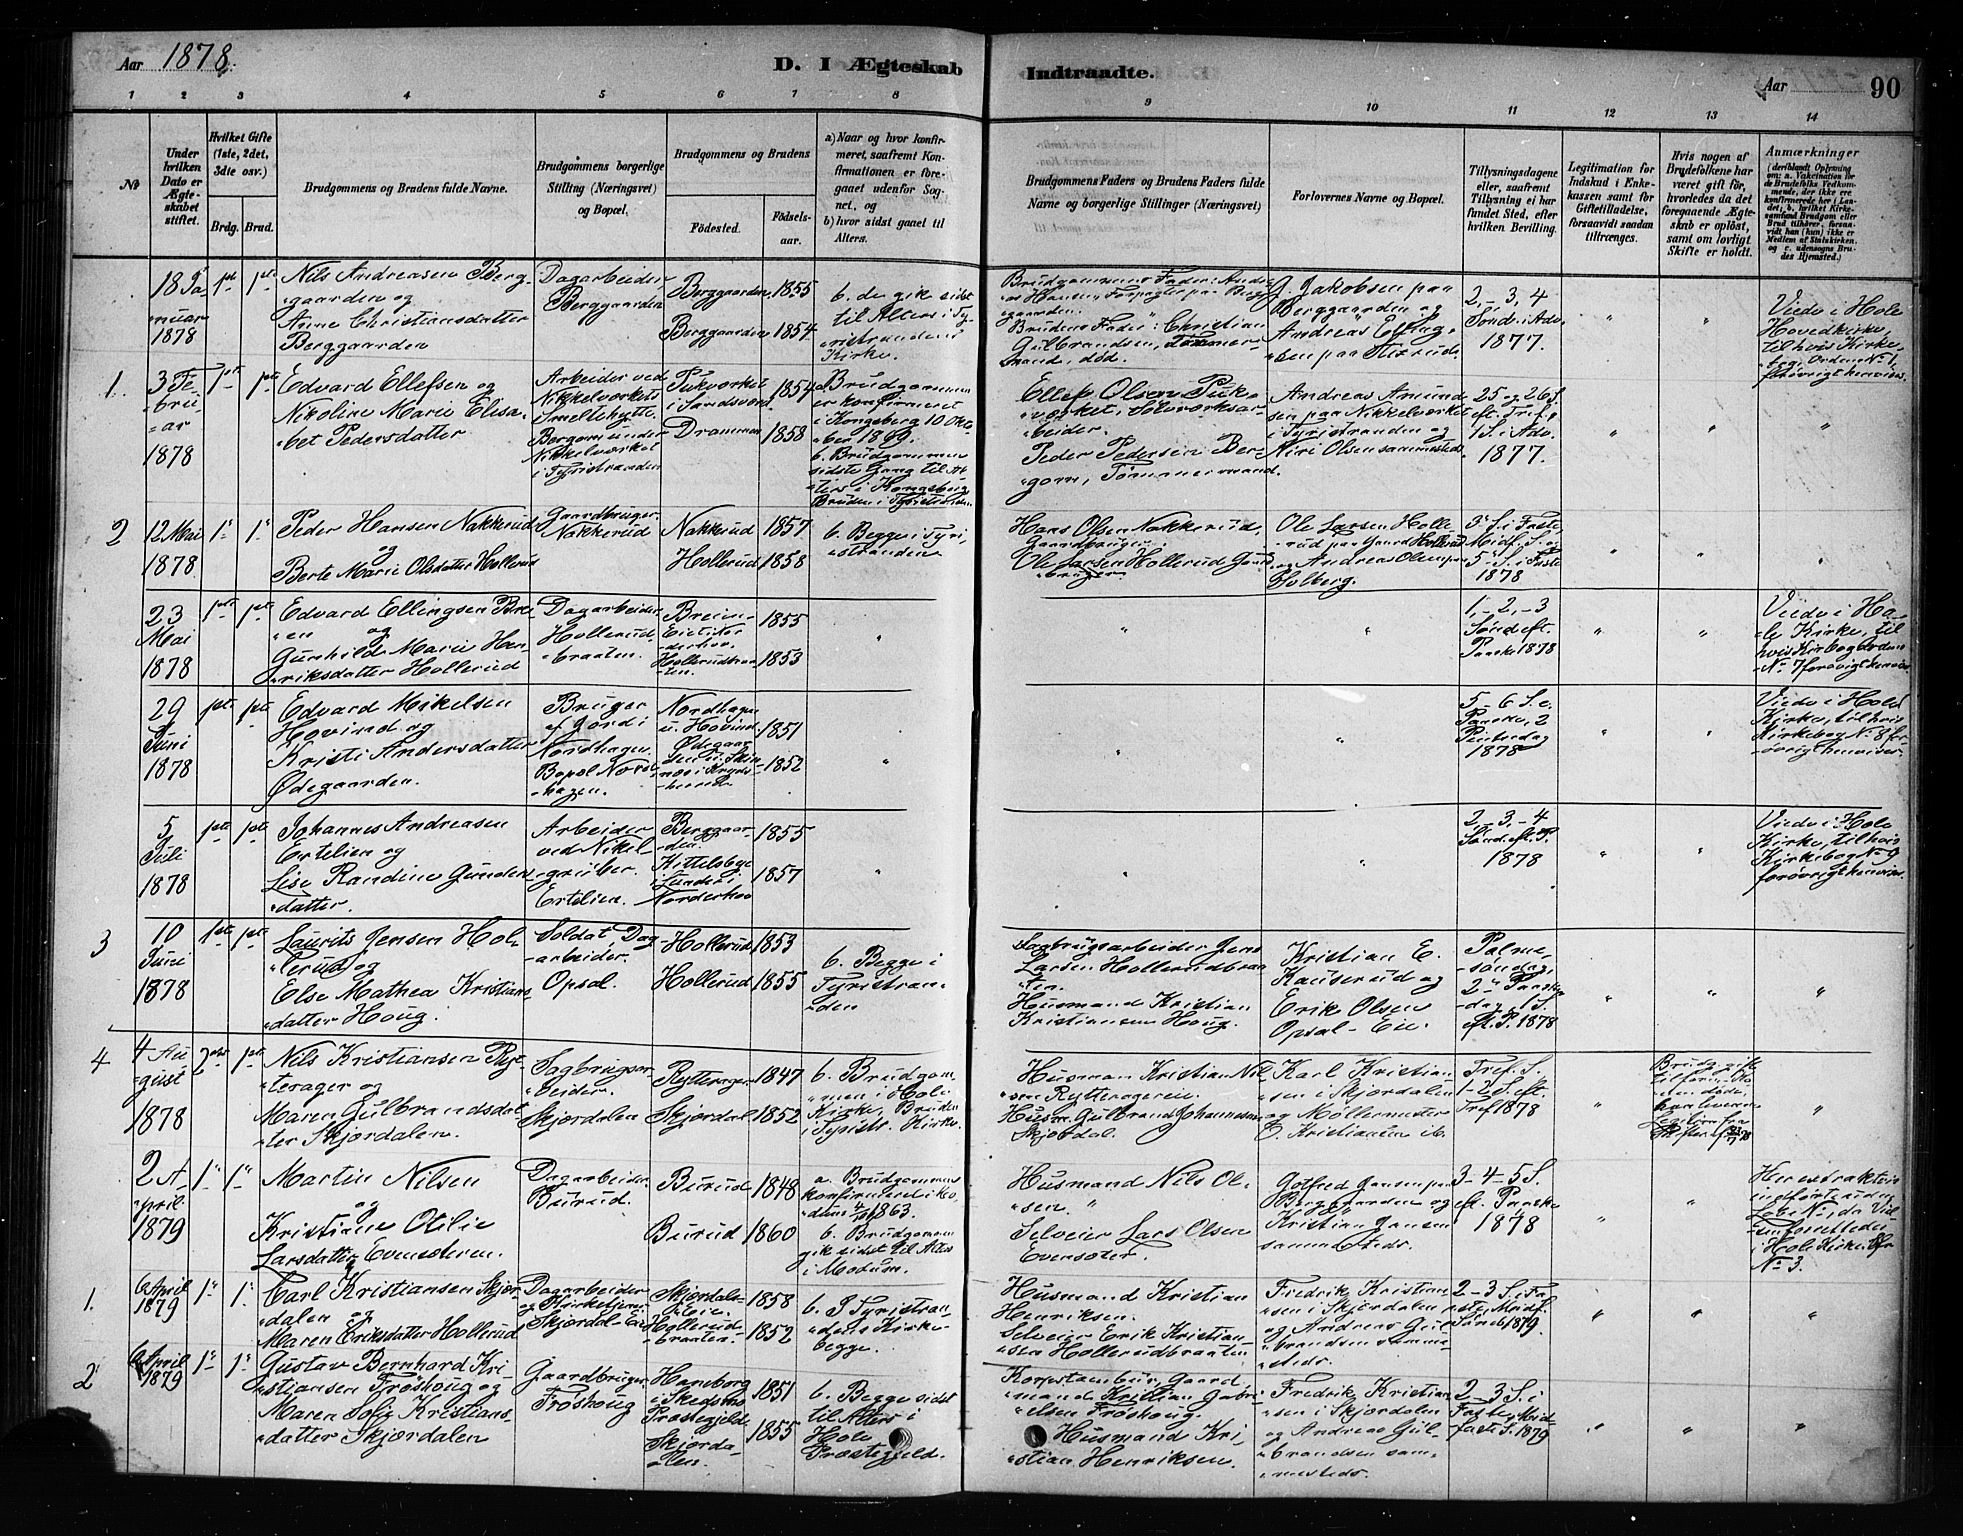 Aar 1878.
D. I Ægteskab Indtraadte.
Aar
90
1 2 3 4 5 6 7 8 9 10 11 12 13 14
№
Under hvilken Dato er Ægteskabet stiftet.
Hvilket Gifte (1ste, 2det, 3dte osv.)
Brdg. Brud.
Brudgommens og Brudens fulde Navne.
Brudgommens borgerlige Stilling (Næringsvei) og Bopæl.
Brudgommens og Brudens
Fødested.
Fødsels-aar.
a) Naar og hvor konfirmeret, saafremt Konfirmationen er foregaaet udenfor Sognet, og
b) hvor sidst gaaet til Alters.
Brudgommens Faders og Brudens Faders fulde Navne og borgerlige Stillinger (Næringsvei)
Forlovernes Navne og Bopæl.
Tillysningsdagene eller, saafremt Tillysning ei har fundet Sted, efter hvilken Bevilling.
Legitimation for Indskud i Enkekassen samt for Giftetilladelse, forsaavidt saadan tiltrænges.
Hvis nogen af Brudefolkene har været gift før, hvorledes da det foregaaende Ægteskab er opløst, samt om lovligt Skifte er holdt.
Anmærkninger
(deriblandt Oplysning om: a. Vakcination for de Brudefolks Vedkommende, der ikke ere konfirmerede her i Landet; b. hvilket Kirkesamfund Brudgom eller Brud tilhører, forsaavidt han (hun) ikke er Medlem af Statskirken, og c. udensogns Brudes Hjemsted.)
18 Januar 1878
1ste 1ste
Nils Andreasen Berggaarden og
Anne Christiansdatter Berggaarden
Dagarbeider, Berggaarden
Berggaarden 1855
Berggaarden 1854
b. de gik sidst til Alters i Tyristrandens Kirke.
Brudgommens Fader: Andreas Hansen Forpagter paa Berggaarden.
Brudens Fader: Christian Gulbrandsen, Tømmermand, død.
J. Jakobsen paa Berggaarden og Andreas Elling-sen paa
2, 3, 4 Sønd. i Adv. 1877
Viede i Hole Hovedkirke, til hvis Kirkebog Orden No 1, forøvrigt henvises.
1. 3 Februar 1878
1ste 1ste
Edvard Ellefsen og
Nikoline Marie Elisabet Pedersdatter
Arbeider ved Nikkelverkets Smeltehytte. Bergom under Nikkelverket i Tyristranden
Pukverket i Sandsverd 1854
Drammen 1858
a. Brudgommen er konfirmeret i Kongsberg 10 Oktober 1869.
b. Brudgommen sidste Gang til Alters i Kongsberg, Bruden i Tyristranden
Ellef Olsen Pukverket, Sølvverksarbeider.
Peder Pedersen Bergom, Tømmermand.
Andreas Amundsen paa Nikkelverket i Tyristranden og Niri Olsen sammesteds
25 og 26 S. eft. Tref. og 1 S. i Adv. 1877.
2 12 Mai 1878
1" 1"
Peder Hansen Nakkerud og
Berte Marie Olsdatter Hollerud
Gaardbruger, Nakkerud
Nakkerud 1857
Hollerud 1858
b. Begge i Tyristranden
Hans Olsen Nakkerud, Gaardbruger.
Ole Larsen Hollerud Gaardbruger
Ole Larsen Hollerud paa Gaard Hollerud og Andreas Olsen paa Holberg.
3" S. i Faste Midf. S. og 5" S. i Faste 1878
23 Mai 1878
1ste 1ste
Edvard Ellingsen Breien og
Gunhild Marie Henriksdatter Hollerud
Dagarbeider Hollerudbraaten.
Breien 1855
Hollerudbraaten. 1853
1, 2, 3 Sønd. eft. Paaske 1878
Viede i Hole Kirke, til hvis Kirkebog Orden No 7 forøvrigt henvises
29 Juni 1878
1ste 1ste
Edvard Mikelsen Hovind og
Kristi Andersdatter Ødegaarden.
Bruger af Jord i Nordhagen. Bopæl Nordhagen.
Nordhagen u. Hovind 1851
Ødegaarden 1852
5-6 S. e. Paaske, 2 Pintsedag 1878
Viede i Hole Kirke, til hvis Kirkebog No 8 forøvrigt henvises
5 Juli 1878
1ste 1ste
Johannes Andreasen Ertelien og
Lise Randine Gundersdatter.
Arbeider ved Nikelgruber. Ertelien.
Berggaarden. 1855
Kittelsbye i Lunder i Norderhov 1857
2-3-4 Sønd. eft. P. 1878
Viede i Hole Kirke, til hvis Kirkebog No 9 forøvrigt henvises.
3 10 Juni 1878
1ste 1ste
Laurits Jensen Hollerud og
Else Mathea Kristiansdatter Houg.
Soldat, Dagarbeider. Opsal.
Hollerud 1853
Hollerud 1855
b. Begge i Tyristranden
Sagbrugsarbeider Jens Larsen Hollerudbraaten.
Husmand Kristian Kristiansen Houg.
Kristian E. Kauserud og Erik Olsen Opsal-Eie.
Palmesøndag, 2" Paaskedag, 1 S. eft. P. 1878
4 4 August 1878
2det 1ste
Nils Kristiansen Rytterager og
Maren Gulbrandsdatter Skjordalen.
Sagbrugsarbeider. Skjordalen
Rytterager 1847
Skjordal 1852
b. Brudgommen i Hole Kirke, Bruden i Tyristr. Kirke
Husman Kristian Nilsen Rytterageren.
Husm. Gulbrand Johannesen Skjordal.
Karl Kristiansen i Skjordalen og Møllermester E. Kristiansen ib.
Tref. S. 1-2 S. eft. Tref 1878
2 April 1879
1" 1"
Martin Nilsen og
Kristiane Otilie Larsdatter Evensæteren.
Dagarbeider. Burud.
Burud 1848
Burud 1860
a. Brudgommen konfirmered i Modum 1863.
b. Brudgommen gik sidst til Alters i Modum.
Husmand Nils Olsen.
Selveier Lars Olsen Evensæter.
Gotfred Jansen paa Berggaarden og Kristian Jansen sammesteds.
3-4-5 S. eft. Paaske 1878
i Hole Kirke.
No 3.
1. 6 April 1879
1" 1"
Carl Kristiansen Skjordalen og
Maren Eriksdatter Hollerud
Dagarbeider og Kirketjener Skjordal-Eie
Skjordals-Eie 1858
Hollerudbraaten 1852
b. I Tyristrandens Kirke begge.
Husmand Kristian Henriksen.
Selveier Erik Kristiansen Hollerudbraaten
Fredrik Kristiansen i Skjordalen og Andreas Gulbrandsen sammesteds.
2-3 S. i Faste, Midf. Sønd. 1879.
2 6 April 1879
1" 1"
Gustav Bernhard Kristiansen Frøshoug og
Maren Sofie Kristiansdatter Skjordalen
Gaardbruger Frøshoug
Hamborg i Skedsmo Præstegjeld 1851
Skjordalen. 1855
b. Begge sidst til Alters i Hole Præstegjeld.
Gaardmand Kristian Gabrielsen Frøshoug.
Husmand Kristian Henriksen.
Fredrik Kristiansen i Skjordalen og Andreas Gulbrandsen sammesteds.
2-3 S. i Faste, Midfaste S. 1879